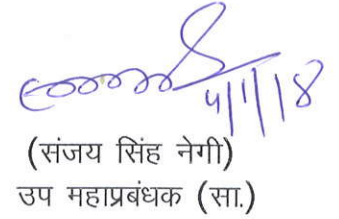 4/1/18
(संजय सिंह नेगी)
उप महाप्रबंधक (सा.)